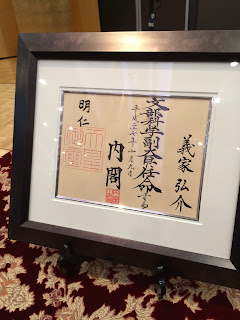 義家弘介
文部科学副大臣に任命する
平成二十七年十月九日
内閣
明仁